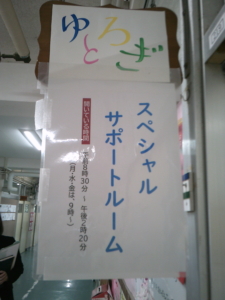 ゆとろぎ
スペシャル
サポートルーム
開いている時間
午前8時30分 ～ 午後2時20分
(月・水・金は、9時～)